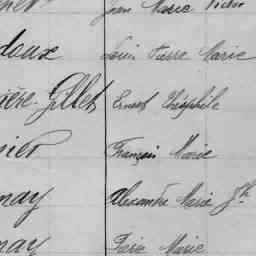 Jean Marie Victor
doux Louis Pierre Marie
ière-Gillet Ernest Théophile
nier François Marie
nay Alexandre Marie Jh
nay Pierre Marie